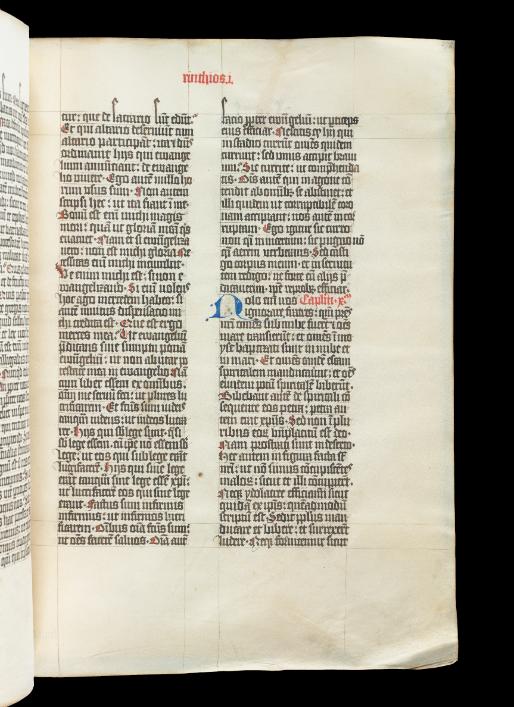 rinthios.i.
tur: que de sacrario sūt edūt.
Et qui altario deserviūt cum
altario participāt: ita et dn̄s
ordinavit hijs qui evange
lium annūciant: de evange
lio vivere. Ego autē nullo ho
rum usus sum. Non autem
scripsi hec: ut ita fiant ī me.
Bonū est enī michi magis
mori: quā ut gloriā meā q̄s
evacuet. Nam et si evāgeliza
vero: non est michi gloria. Ne
cessitas enī michi incumbit.
Ve enim michi est: si non e
vangelizavero. Si enī volens
hoc ago: mercedem habeo: si
autē invitus dispensatio mi
chi credita est. Que est ergo
merces mea. Ut evangelium
p̄dicans sine sumptu ponā
evangeliū: ut non abutar po
testate mea in evangelio. Nā
cum liber essem ex omnibus:
om̄iū me servū feci: ut plures lu
crifacerem. Et factus sum iudeis
tanquam iudeus: ut iudeos lucra
rer. Hijs qui sub lege sunt: q̄si
sub lege essem: cū ipse nō essem sub
lege: ut eos qui sub lege erāt
lucrifacerē. Hijs qui sine lege
erāt tanquā sine lege essē:
ut lucrifacerē eos qui sine lege
erant. Factus sum infirmis
infirmus: ut infirmos lucri
facerem. Om̄ibus om̄ia factus sum:
ut om̄es facerē salvos. Om̄ia autē
facio propter evangeliū: ut particeps
eius efficiar. Nescitis quod hii qui
in stadio currūt omnes quidem
currunt: sed unus accipit bravi
um. Sic currite: ut comprehenda
tis. Om̄is autē qui in agone cō
tendit ab omnibus se abstinet: et
illi quidem ut corruptibilē coro
nam accipiant: nos autē incor
ruptam. Ego igitur sic curro:
non quasi in incertum: sic pugno nō
quasi aerem verberans. Sed casti
go corpus meum et in servitu
tem redigo: ne forte cū alijs p̄
dicaverim ipse reprobus efficiar.
Nolo enī vos Capitulū .x.
ignorare fratres: quoniam patres
nostri omnes sub nube fuerūt: et om̄es
mare transierūt: et omnes ī moy
se baptizati sunt in nube et
in mari. Et omnes eandē escam
spiritalem manducaverūt: et om̄es
eundem potū spiritalē biberūt.
Bibebant autē de spiritali cō
sequente eos petra: petra au
tem erat cristus. Sed non ī plu
ribus eorum bn̄placitū est deo.
Nam prostrati sunt in deserto.
Hec autem in figura facta sūt
nostri: ut nō simus concupiscētes
malorum: sicut et illi concupierūt.
Neque ydolatre efficiamini sicut
quidam ex ipsis: quēadmodū
scriptū est. Sedit populus man
ducare et bibere: et surrexerūt
ludere. Neque fornicemur sicut